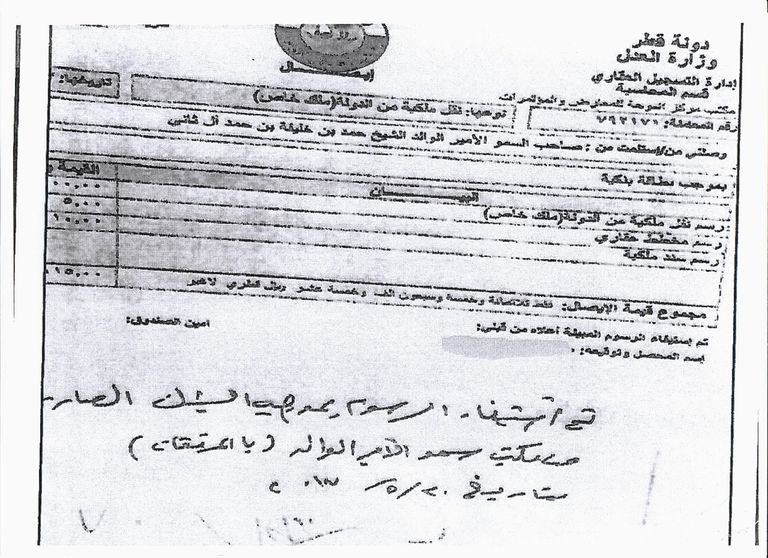 دولة قطر
وزارة العدل
إدارة التسجيل العقاري
قسم المحاسبة
مكتب مركز الدوحة للمعارض والمؤتمرات
إيصال
رقم المعاملة: ٧٩٢١٧١
نوعها: نقل ملكية من الدولة(ملك خاص)
تاريخها:
وصلني من/إستلمت من : صاحب السمو الأمير الوالد الشيخ حمد بن خليفة بن حمد آل ثاني
بموجب بطاقة بنكية
البيــــــــان
القيمة و
رسم نقل ملكية من الدولة(ملك خاص)
٠٠,٠٠
رسم مخطط عقاري
٥,٠٠
رسم سند ملكية
١٠,٠٠
١١٥,٠٠
مجموع قيمة الإيصال: فقط ثلاثمائة وخمسة وسبعون الف وخمسة عشر ريال قطري لاغير
تم إستيفاء الرسوم المبينة أعلاه من قبلي:
امين الصندوق:
اسم المحصل وتوقيعه:
تم استيفاء الرسوم بموجب الشيك الصادر
من مكتب سمو الأمير الوالد (بالمرفقات)
بتاريخ ٢٠/٥/